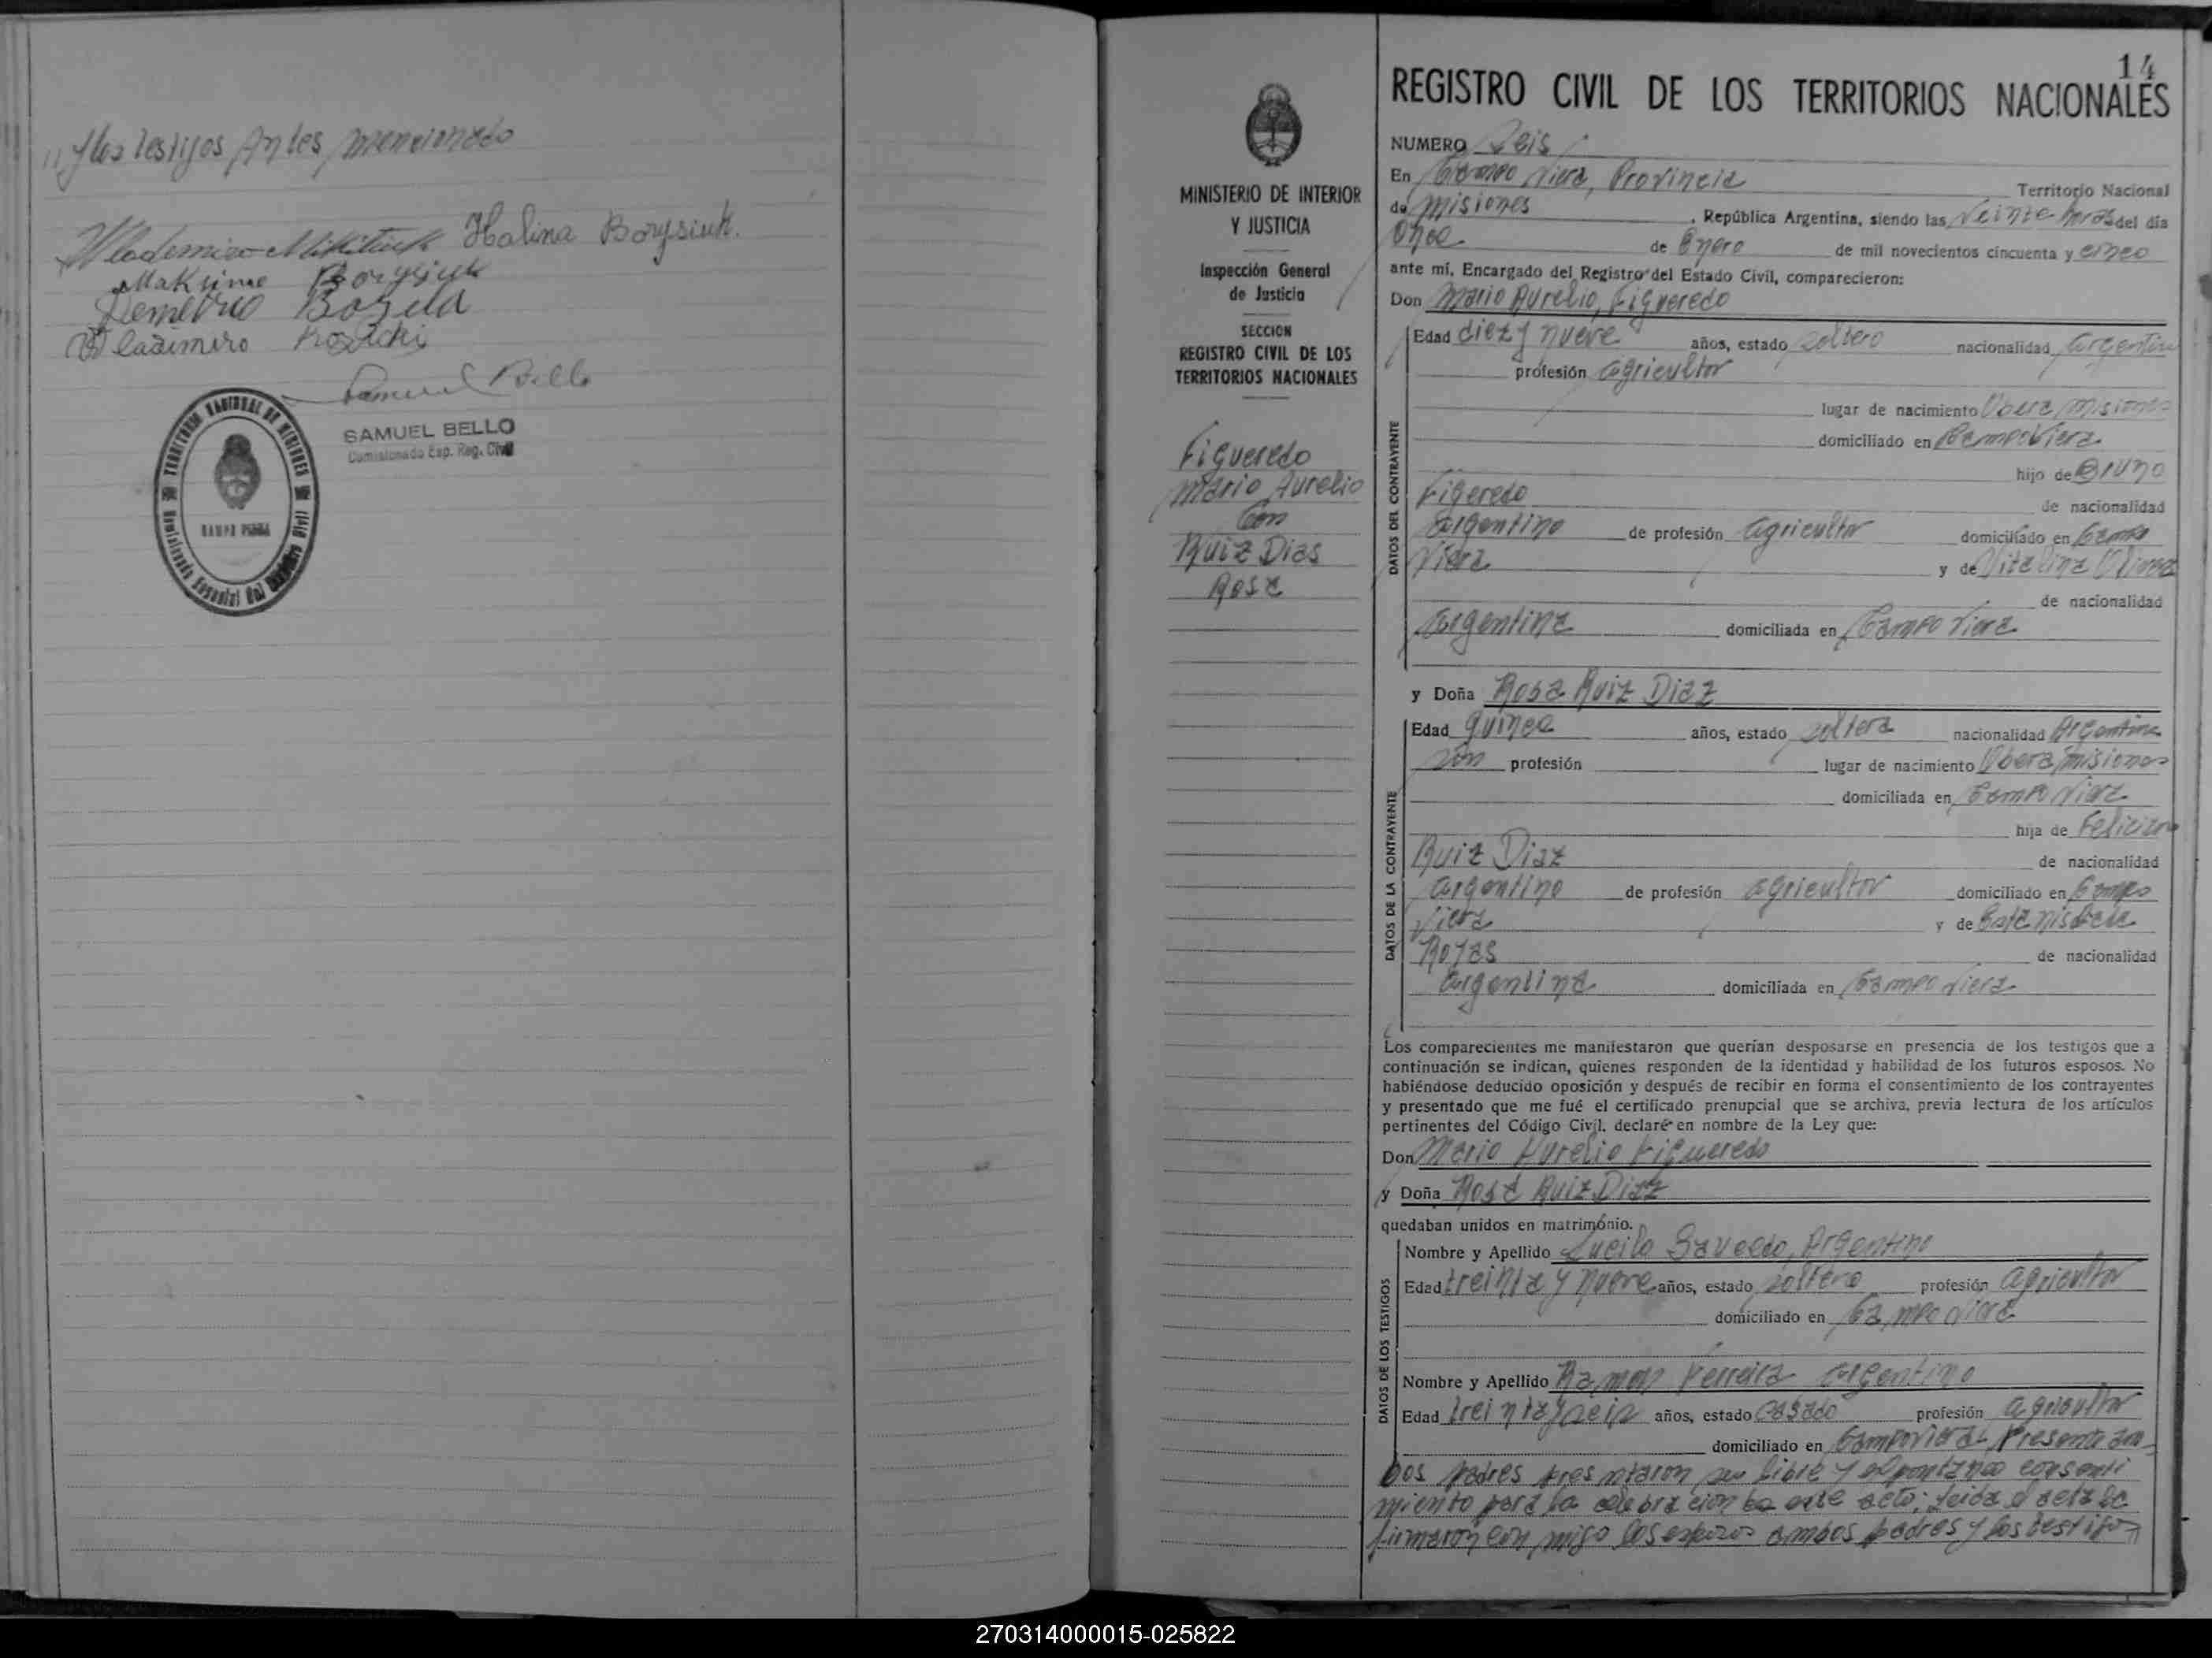 // y los testigos Antes mencionado
Wlademiro Mikitiuk Halina Borysiuk.
Maksimo Borysiuk
Demetrio
Wladimiro Kozicki
Samuel Bello
SAMUEL BELLO
Comisionado Esp. Reg. Civil
TERRITORIO NACIONAL DE MISIONES
CAMPO VIERA
14
REGISTRO CIVIL DE LOS TERRITORIOS NACIONALES
MINISTERIO DE INTERIOR
Y JUSTICIA
Inspección General
de Justicia
SECCION
REGISTRO CIVIL DE LOS
TERRITORIOS NACIONALES
Figueredo
Mario Aurelio
Con
Ruiz Dias
Rosa
NUMERO Seis
En Campo Viera, Provincia Territorio Nacional
de Misiones , República Argentina, siendo las Veinte horas del día
Once de Enero de mil novecientos cincuenta y cinco
ante mí, Encargado del Registro del Estado Civil, comparecieron:
Don Mario Aurelio, Figueredo
DATOS DEL CONTRAYENTE
Edad diez y nueve años, estado soltero nacionalidad Argentin
profesión agricultor
lugar de nacimiento Obera Misiones
domiciliado en Campo Viera
hijo de Bruno
Figeredo de nacionalidad
argentino de profesión agricultor domiciliado en Campo
Viera y de Vitalina
de nacionalidad
argentina domiciliada en Campo Viera
y Doña Rosa Ruiz Diaz
DATOS DE LA CONTRAYENTE
Edad quince años, estado soltera nacionalidad Argentina
sin profesión lugar de nacimiento Obera Misiones
domiciliada en Campo Viera
hija de Feliciano
Ruiz Diaz de nacionalidad
argentino de profesión agricultor domiciliado en Campo
Viera y de
Rojas de nacionalidad
argentina domiciliada en Campo Viera
Los comparecientes me manifestaron que querían desposarse en presencia de los testigos que a
continuación se indican, quienes responden de la identidad y habilidad de los futuros esposos. No
habiéndose deducido oposición y después de recibir en forma el consentimiento de los contrayentes
y presentado que me fué el certificado prenupcial que se archiva, previa lectura de los artículos
pertinentes del Código Civil, declaré en nombre de la Ley que:
Don Mario Aurelio Figueredo
y Doña Rosa Ruiz Diaz
quedaban unidos en matrimonio.
DATOS DE LOS TESTIGOS
Nombre y Apellido Lucilo Argentino
Edad treinta y nueve años, estado soltero profesión agricultor
domiciliado en Campo Viera
Nombre y Apellido Ramon Ferreira argentino
Edad treinta y seis años, estado Casado profesión agricultor
domiciliado en Campo Viera Presente am-
bos padres prestaron su libre y espontaneo consenti
miento para la celebracion de este acto; leida el acta la
firmaron con migo los esposos ambos padres y los testigos
270314000015-025822